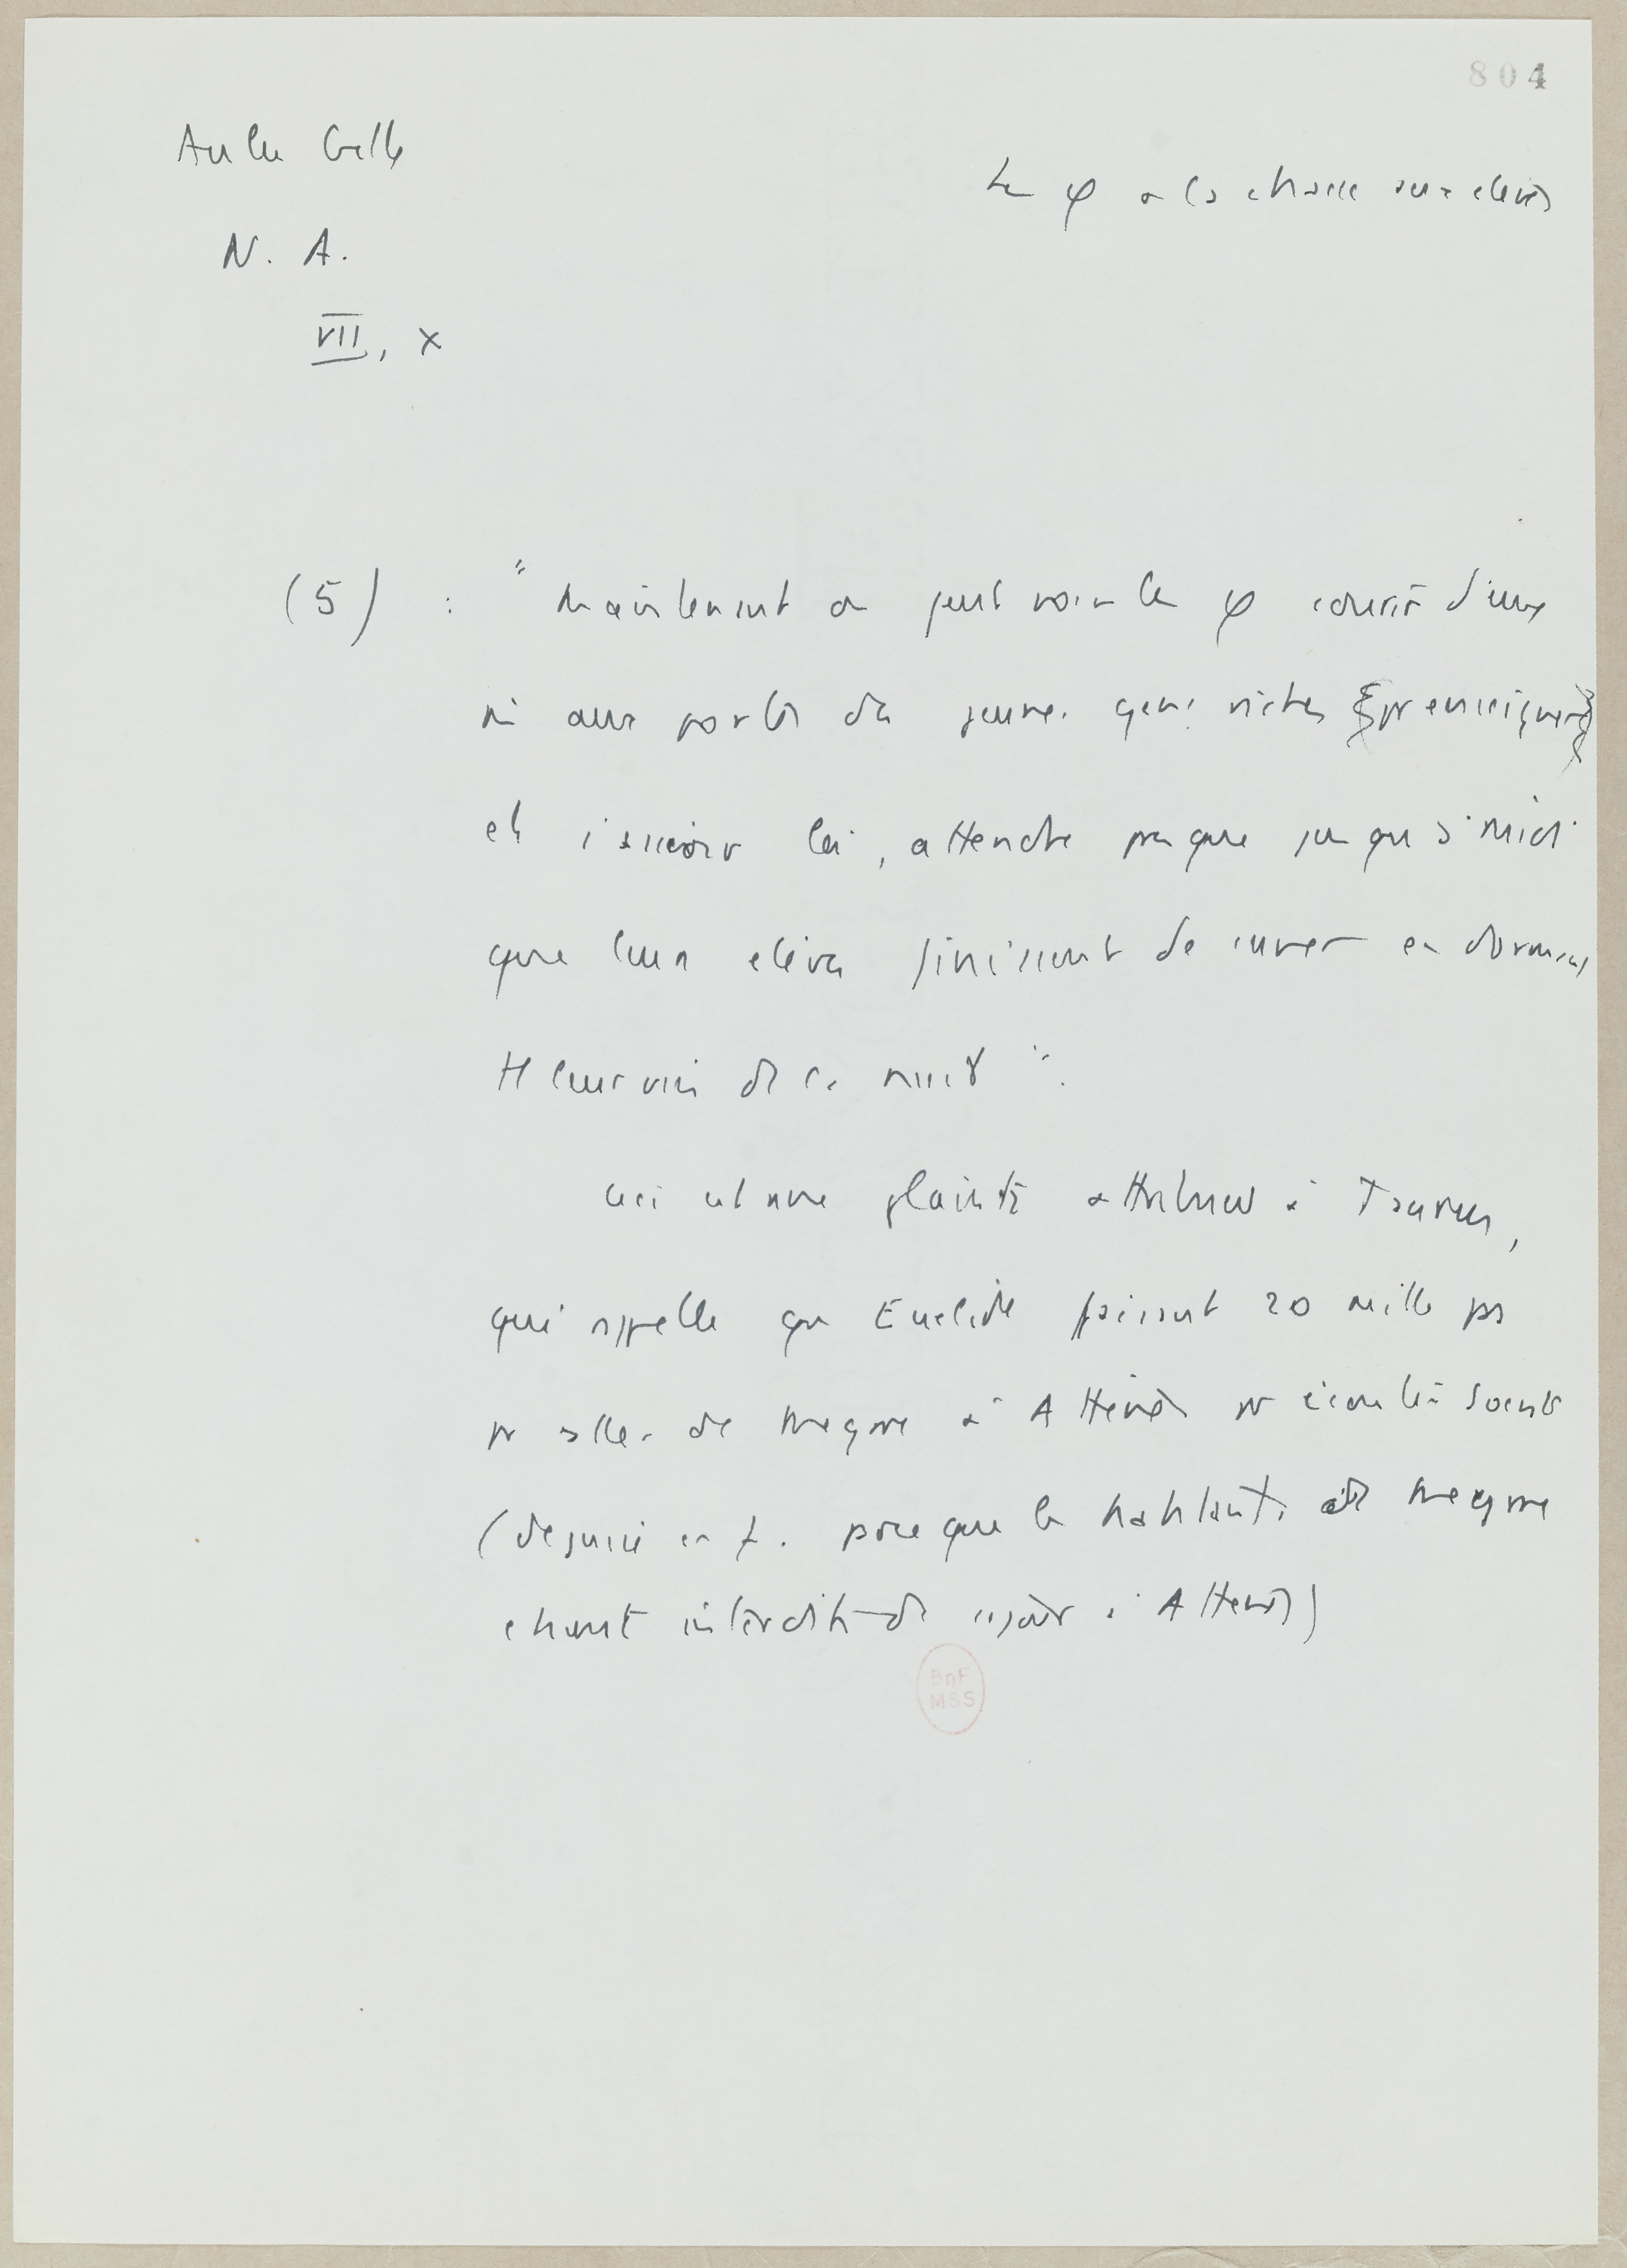 804
Aulu Gelle
Les φ a la chasse aux élèves
N. A.
VII, X
(5) : " Maintenant on peut voir les φ courir d'eux
m̂ aux portes des jeunes gens riches {pr enseigner}
et s'asseoir là, attendre presque jusqu'à midi
que leurs élèves finissent de cuver en dormant
tt leur vin de la nuit ".
Ceci est une plainte attribuée à Taurus,
qui rappelle que Euclide faisait 20 mille pas
pr aller de Mégare à Athènes pr écouter Socrate
(déguisé en f. parce que les habitants de Mégare
étaient interdits de séjour à Athènes)
BnF
MSS